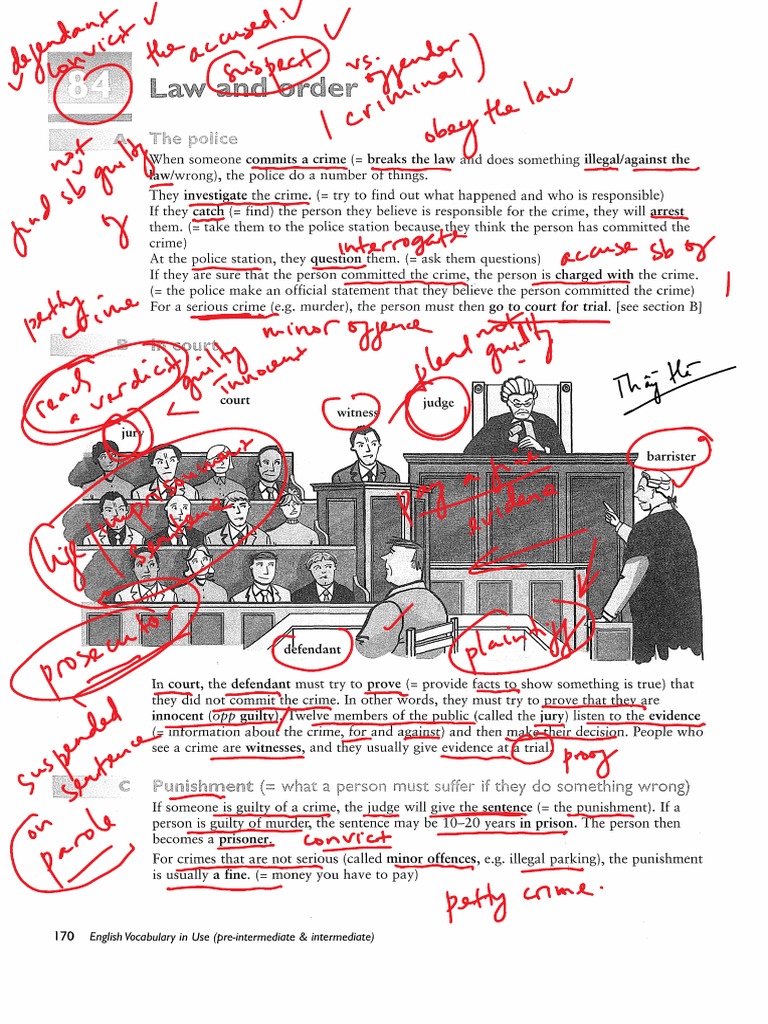 defendant
convict
the accused.
suspect
vs. offender
(criminal)
obey the law
84
Law and order
A The police
not
find sb guilty
of
When someone commits a crime (= breaks the law and does something illegal/against the
law/wrong), the police do a number of things.
They investigate the crime. (= try to find out what happened and who is responsible)
If they catch (= find) the person they believe is responsible for the crime, they will arrest
them. (= take them to the police station because they think the person has committed the
crime)
interrogate
accuse sb of
At the police station, they question them. (= ask them questions)
If they are sure that the person committed the crime, the person is charged with the crime.
(= the police make an official statement that they believe the person committed the crime)
For a serious crime (e.g. murder), the person must then go to court for trial. [see section B]
petty
crime
minor offence
B In court
plead not
guilty
reach
a verdict
guilty
innocent
court
witness
judge
Thầy Hà
jury
barrister
high/imprisonment
sentence
pay a fine
evidence
prosecutor
defendant
plaintiff
In court, the defendant must try to prove (= provide facts to show something is true) that
they did not commit the crime. In other words, they must try to prove that they are
innocent (opp guilty). Twelve members of the public (called the jury) listen to the evidence
(= information about the crime, for and against) and then make their decision. People who
see a crime are witnesses, and they usually give evidence at a trial.
proof
suspended
sentence
C Punishment (= what a person must suffer if they do something wrong)
If someone is guilty of a crime, the judge will give the sentence (= the punishment). If a
person is guilty of murder, the sentence may be 10–20 years in prison. The person then
becomes a prisoner.
convict
on
parole
For crimes that are not serious (called minor offences, e.g. illegal parking), the punishment
is usually a fine. (= money you have to pay)
petty crime.
170 English Vocabulary in Use (pre-intermediate & intermediate)